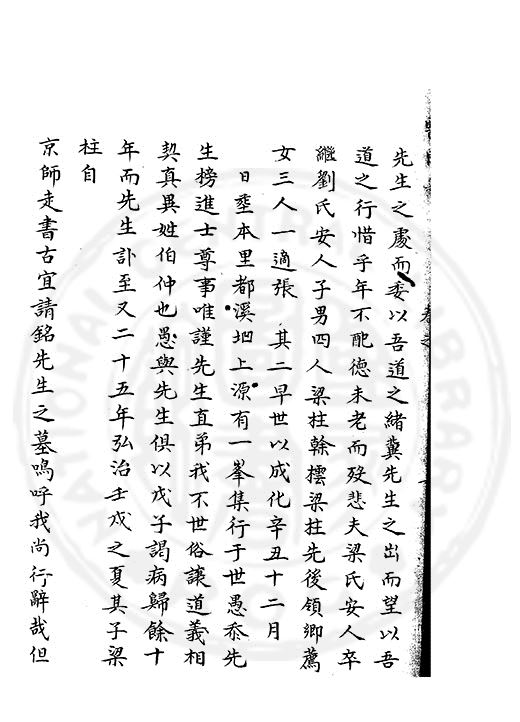 先生之處而委以吾道之緒冀先生之出而望以吾
道之行惜乎年不配德未老而歿悲夫梁氏安人卒
繼劉氏安人子男四人梁柱榦橒梁柱先後領鄉薦
女三人一適張 其二早世以成化辛丑十二月
日塟本里都溪垇上源有一峯集行于世愚忝先
生榜進士尊事唯謹先生直弟我不世俗讓道義相
契真異姓伯仲也愚與先生俱以戊子謁病歸餘十
年而先生訃至又二十五年弘治壬戌之夏其子梁
柱自
京師走書古宜請銘先生之墓嗚呼我尚行辭哉但